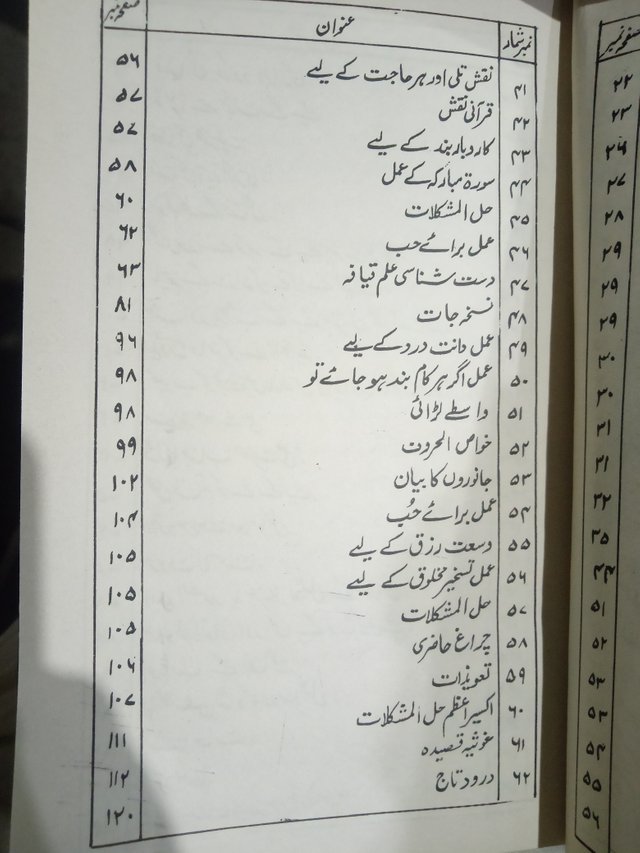 صفحہ نمبر
۲۲
۲۳
۲۶
۲۷
۲۸
۲۹
۲۹
۲۹
۳۰
۳۰
۳۱
۳۱
۳۲
۳۵
۵۱
۵۲
۵۳
۵۳
۵۴
۵۵
۵۶
نمبر شمار عنوان صفحہ نمبر
۴۱ نقش تلی اور ہر حاجت کے لیے ۵۶
۴۲ قرآنی نقش ۵۷
۴۳ کاروبار بند کے لیے ۵۷
۴۴ سورۃ مبارکہ کے عمل ۵۸
۴۵ حل المشکلات ۶۰
۴۶ عمل برائے حب ۶۲
۴۷ دست شناسی علم قیافہ ۶۳
۴۸ نسخہ جات ۸۱
۴۹ عمل دانت درد کے لیے ۹۶
۵۰ عمل اگر ہر کام بند ہو جائے تو ۹۸
۵۱ واسطے لڑائی ۹۸
۵۲ خواص الحروف ۹۹
۵۳ جانوروں کا بیان ۱۰۲
۵۴ عمل برائے حُب ۱۰۴
۵۵ وسعت رزق کے لیے ۱۰۵
۵۶ عمل تسخیر مخلوق کے لیے ۱۰۵
۵۷ حل المشکلات ۱۰۵
۵۸ چراغ حاضری ۱۰۶
۵۹ تعویذات ۱۰۷
۶۰ اکسیر اعظم حل المشکلات ۱۱۱
۶۱ غوثیہ قصیدہ ۱۱۲
۶۲ درود تاج ۱۲۰